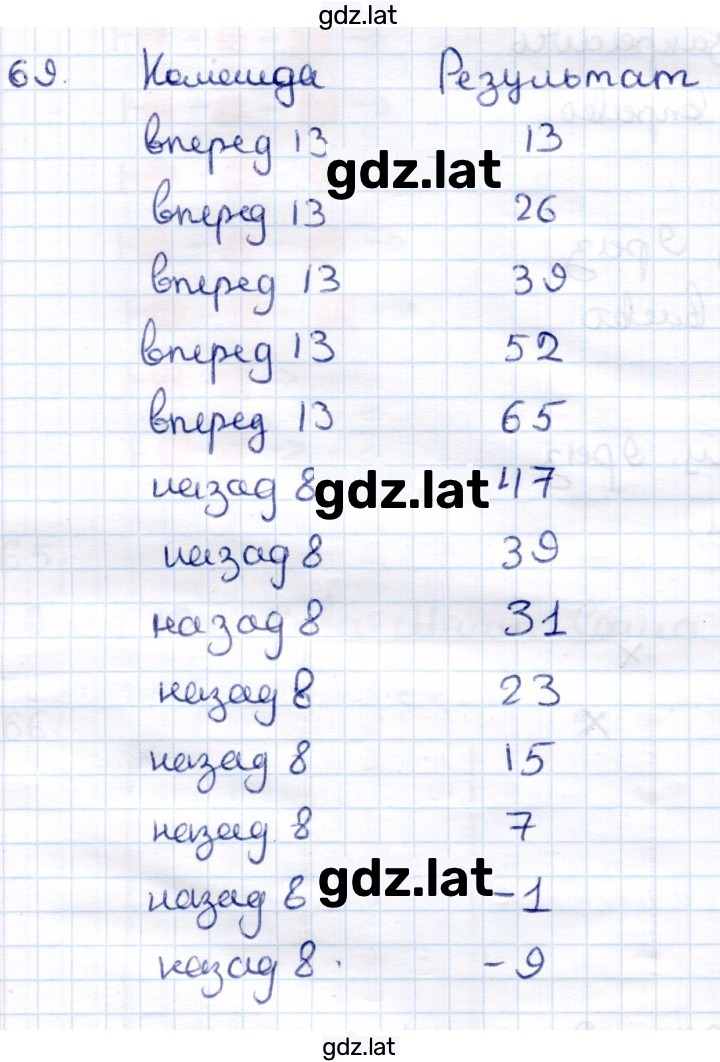 gdz.lat
69. Команда Результат
вперед 13 13
gdz.lat
вперед 13 26
вперед 13 39
вперед 13 52
вперед 13 65
назад 8 gdz.lat 47
назад 8 39
назад 8 31
назад 8 23
назад 8 15
назад 8 7
назад 8 gdz.lat -1
назад 8. -9
gdz.lat